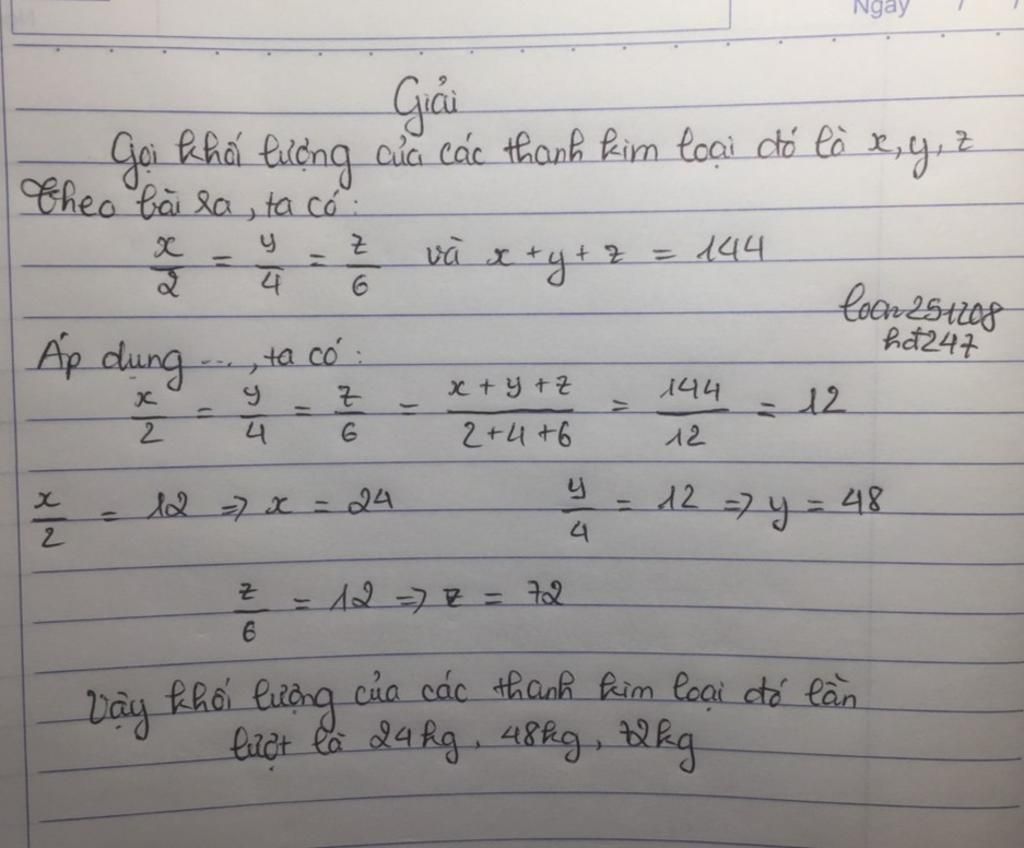 Ngày / /
Giải
Gọi khối lượng của các thanh kim loại đó là x, y, z
Theo bài ra, ta có:
x/2 = y/4 = z/6 và x + y + z = 144
loan251208
hđ247
Áp dụng ..., ta có:
x/2 = y/4 = z/6 = (x + y + z)/(2 + 4 + 6) = 144/12 = 12
x/2 = 12 => x = 24 y/4 = 12 => y = 48
z/6 = 12 => z = 72
Vậy khối lượng của các thanh kim loại đó lần
lượt là 24kg, 48kg, 72kg